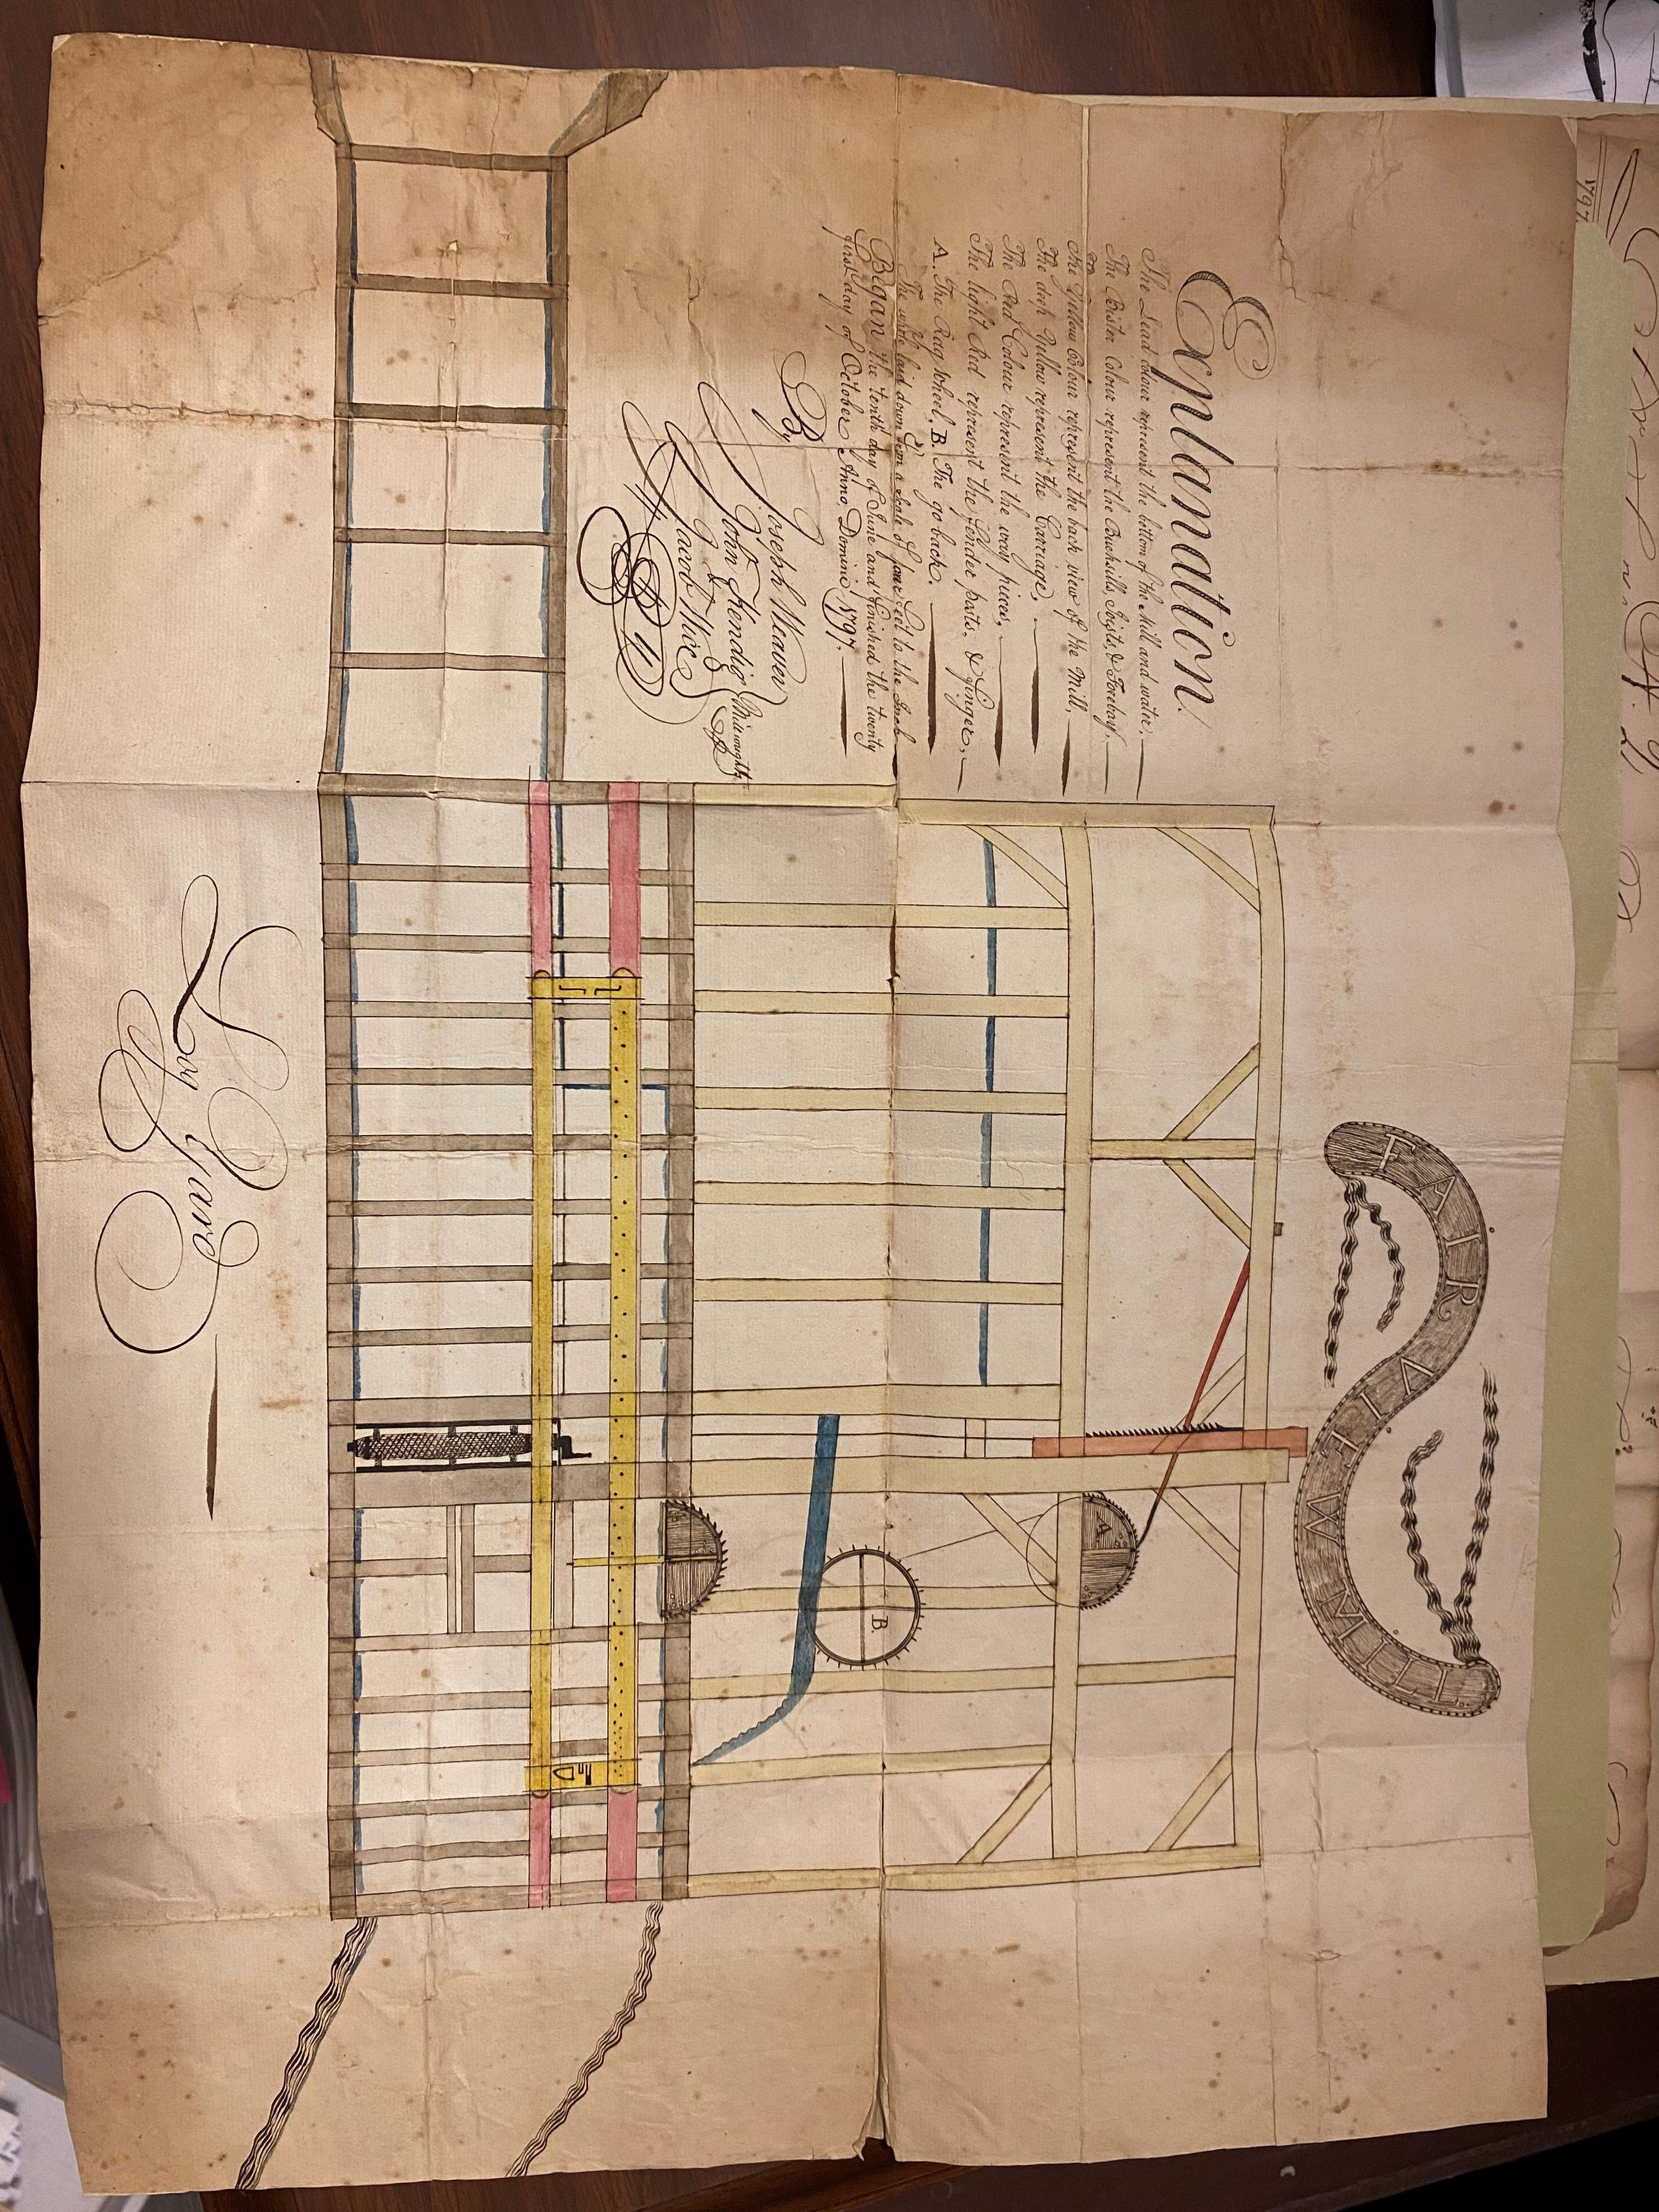 FAIRVIEW MILL
Explanation.
The Lead colour represent the bottom of the Mill and water.
The Bister Colour represent the Bucksills, Joists, & Forebay.
The Yellow Colour represent the back view of the Mill,
The deep Yellow represent the Carriage,
The Red Colour represent the way pieces,
The light Red represent the fender parts, & finger,
A. The Rag Wheel, B. The go back.
The whole laid down from a Scale of four Feet to the Inch
Began the tenth day of June and finished the twenty
first day of October Anno, Domini 1797.
By
Joseph Weaver
John Kendig
&
Jacob Wice
Millwrights
A
B.
Log Yard
1797